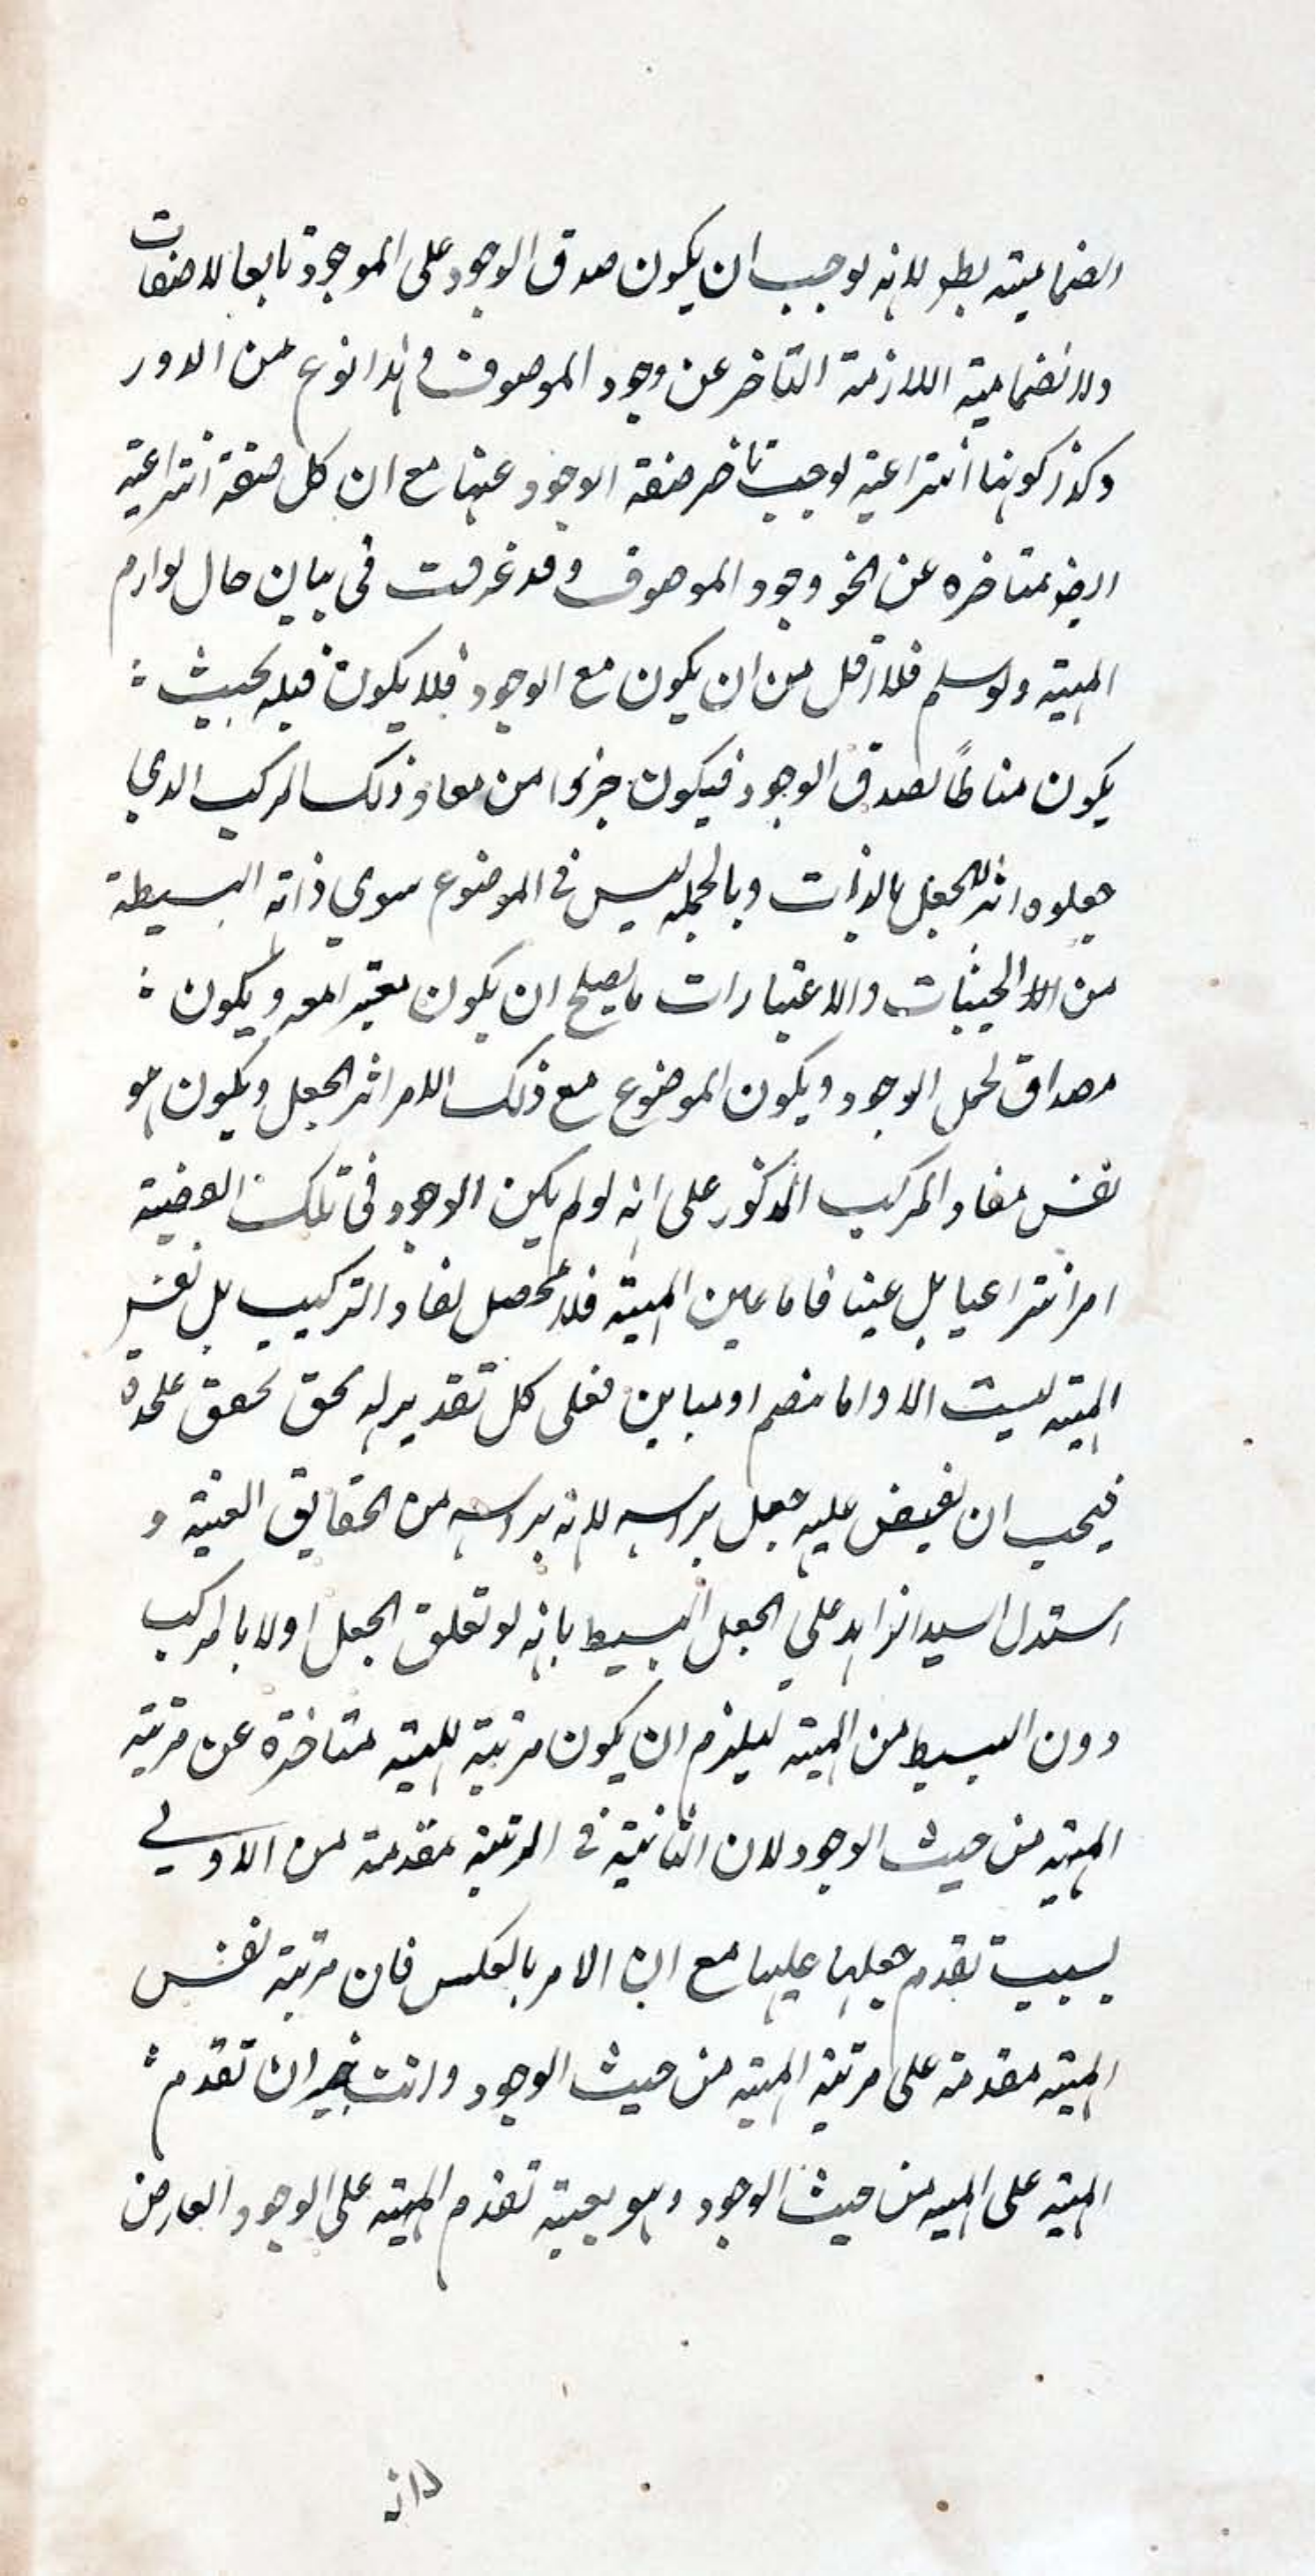 انضمامية بطو لانه يوجب ان يكون صدق الوجود على الموجود تابعا للاتصافات
ولانضمامية اللازمة التأخر عن وجود الموصوف و هذا نوع من الدور
وكذا كونها انتزاعية لوجب تاخر صفة الوجود عنها مع ان كل صفة انتزاعية
ايضا متاخره عن نحو وجود الموصوف وقد عرفت فى بيان حال لوازم
المهية ولو سلم فلا اقل من ان يكون مع الوجود فلا يكون قبله بحيث
يكون مناطًا لصدق الوجود فيكون جزوا من مفاد ذلك المركب الذي
جعلوه اثر الجعل بالذات وبالجمله ليس فى الموضوع سوي ذاته البسيطة
من الحيثيات والاعتبارات ما يصلح ان يكون معتبرا معه و يكون
مصداق لحمل الوجود ويكون الموضوع مع ذلك الامر اثر الجعل ويكون هو
نفس مفاد المركب المذكور على انه لو لم يكن الوجود فى تلك القضية
امرا انتزاعيا بل عينا فاما عين المهية فلا محصل لمفاد التركيب بل نفس
المهية ليست الا واما منضم او مباين فعلى كل تقدير له تحقق عليحدة
فيجب ان يفيض عليه جعل براسه لانه براسه من الحقايق العينية و
استدل السيد الزاهد علي الجعل البسيط بانه لو تعلق الجعل اولا بالمركب
دون البسيط من المهية ليلزم ان يكون مرتبة المهية متاخرة عن مرتبة
المهية من حيث الوجود لان الثانية فى المرتبة مقدمة من الاولي
بسبب تقدم جعلها عليها مع ان الامر بالعكس فان مرتبة نفس
المهية مقدمة على مرتبة المهية من حيث الوجود وانت خبير ان تقدم
المهية على المهية من حيث الوجود وهو بعينه تقدم المهية على الوجود العارض